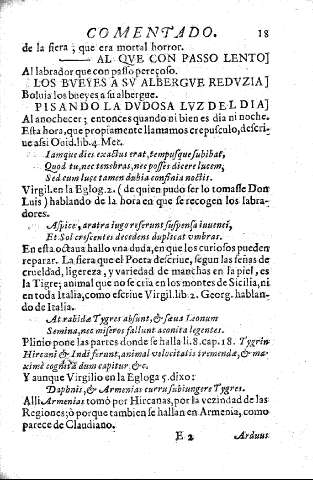 COMENTADO. 18
de la fiera; que era mortal horror.
AL QVE CON PASSO LENTO]
Al labrador que con passo pereçoso.
LOS BVEYES A SV ALBERGVE REDVZIA]
Boluia los bueyes a su albergue.
PISANDO LA DVDOSA LVZ DEL DIA]
Al anochecer; entonces quando ni bien es dia ni noche.
Esta hora, que propiamente llamamos crepusculo, descriue
assi Ouid. lib. 4. Met.
Iamque dies exactus erat, tempusque subibat,
Quod tu, nec tenebras, nec posses dicere lucem,
Sed cum luce tamen dubia confinia noctis.
Virgil. en la Eglog. 2. (de quien pudo ser lo tomasse Don
Luis) hablando de la hora en que se recogen los labradores.
Aspice, aratra iugo referunt suspensa iuuenci,
Et Sol crescentes decedens duplicat vmbras.
En esta octaua hallo vna duda, en que los curiosos pueden
reparar. La fiera que el Poeta descriue, segun las señas de
crueldad, ligereza, y variedad de manchas en la piel, es
la Tigre; animal que no se cria en los montes de Sicilia, ni
en toda Italia, como escriue Virgil. lib. 2. Georg. hablando
de Italia.
At rabidæ Tygres absunt, & sæua Leonum
Semina, nec miseros fallunt aconita legentes.
Plinio pone las partes donde se halla li. 8. cap. 18. Tygrin
Hircani, & Indi ferunt, animal velocitatis tremendæ, & maximè
cognita dum capitur, &c.
Y aunque Virgilio en la Egloga 5. dixo:
Daphnis, & Armenias curru subiungere Tygres.
Alli Armenias tomó por Hircanas, por la vezindad de las
Regiones; ò porque tambien se hallan en Armenia, como
parece de Claudiano.
E 2 Arduus